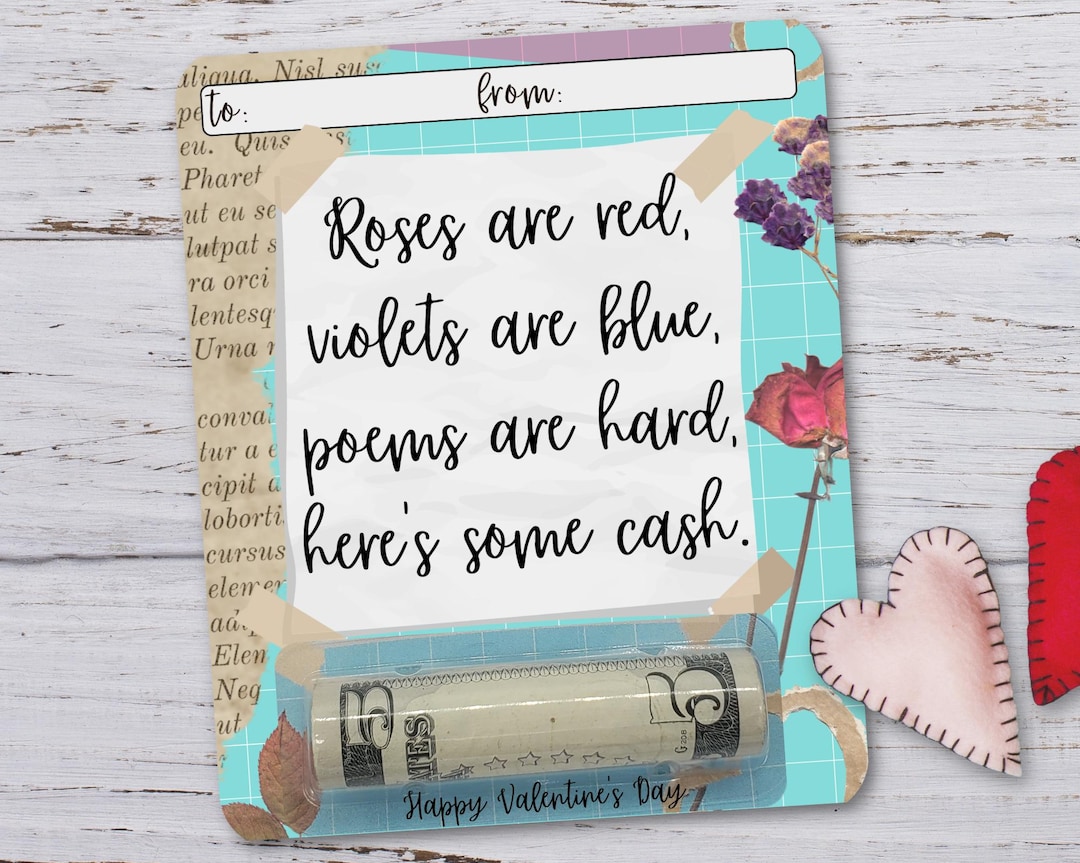 aliqua. Nisl sus
to: from:
eu. Quis
Pharet
ut eu se
lutpat s
ra orci
lentesq
Urna
conva
tur a e
cipit
loborti
cursus
elemen
Elen
Neq
ut
Roses are red,
violets are blue,
poems are hard,
here's some cash.
5 ATES 5
G 208
Happy Valentine's Day